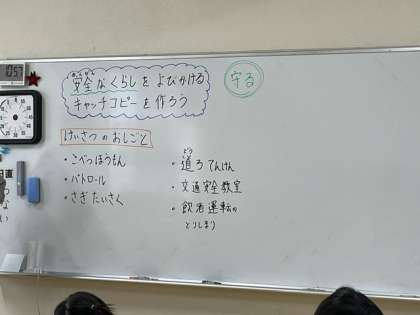 あんぜん
安全なくらしをよびかける
キャッチコピーを作ろう
守る
けいさつのおしごと
・こべつほうもん
・パトロール
・さぎたいさく
どう
・道ろてんけん
・交通安全教室
・飲酒運転の
とりしまり
日直